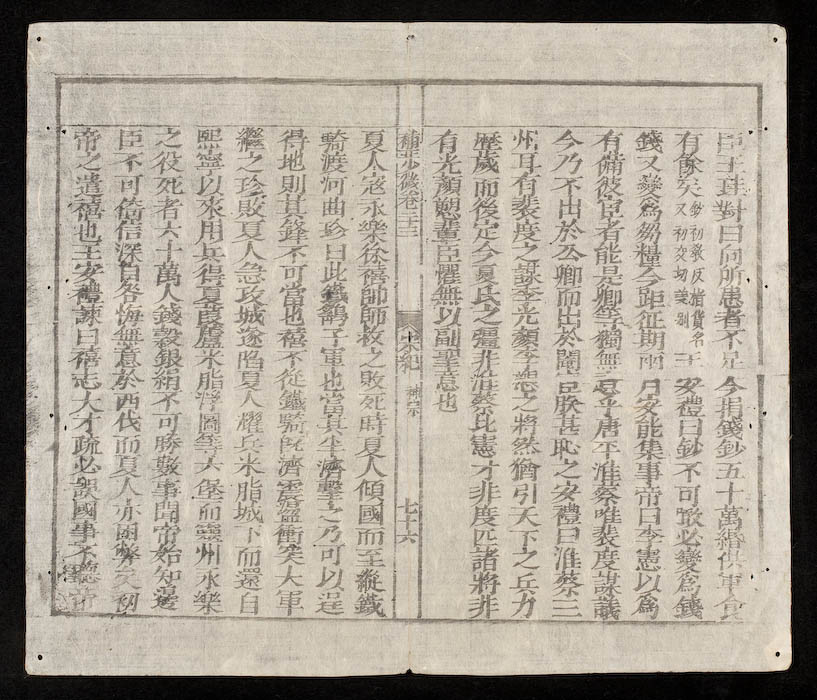 臣王珪對曰向所患者不足今捐錢鈔五十萬緡供軍食
有餘矣鈔初敎反楮貨名又初交切義別王安禮曰鈔不可啖必變爲錢
錢又變爲芻糧今距征期兩月安能集事帝曰李憲以爲
有備彼宦者能是卿等獨無意乎唐平淮蔡唯裴度謀議
今乃不出於公卿而出於閹臣朕甚恥之安禮曰淮蔡三
州耳有裴度之謀李光顏李愬之將然猶引天下之兵力
歷歲而後定今夏氏之彊非淮蔡比憲才非度匹諸將非
有光顏愬輩臣懼無以副聖意也
少微卷二十三 宋紀 神宗 七十六
夏人寇永樂徐禧帥師救之敗死時夏人傾國而至縱鐵
騎渡河曲珍曰此鐵鷂子軍也當其半濟擊之乃可以逞
得地則其鋒不可當也禧不從鐵騎旣濟震盪衝突大軍
繼之珍敗夏人急攻城遂陷夏人耀兵米脂城下而還自
熙寧以來用兵得夏葭蘆米脂浮圖等六堡而靈州永樂
之役死者六十萬人錢穀銀絹不可勝數事聞帝始知邊
臣不可倚信深自咎悔無意於西伐而夏人亦困弊矣初
帝之遣禧也王安禮諫曰禧志大才疏必誤國事不聽帝